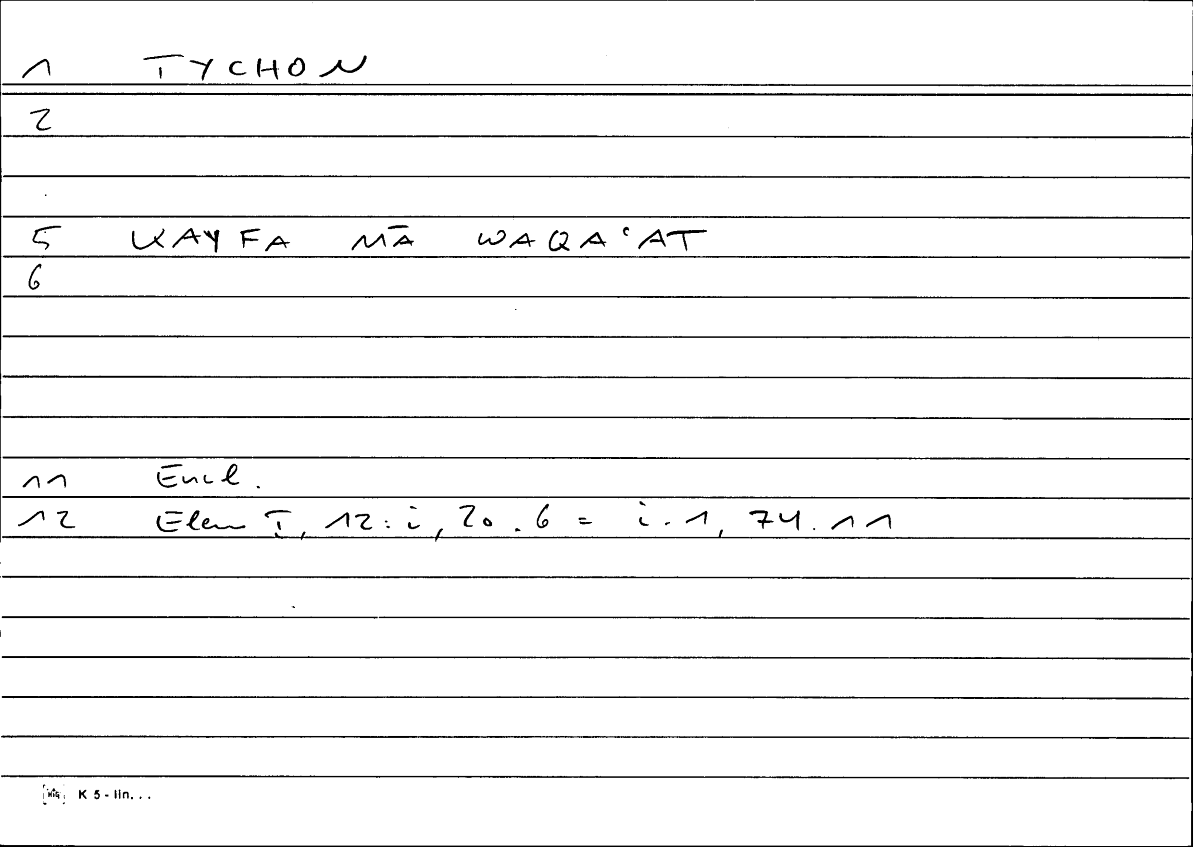 1 TYCHON
2
5 KAYFA MĀ WAQAʿAT
6
11 Eucl.
12 Elem I, 12: i, 20.6 = i.1, 74.11
K 5 - lin...